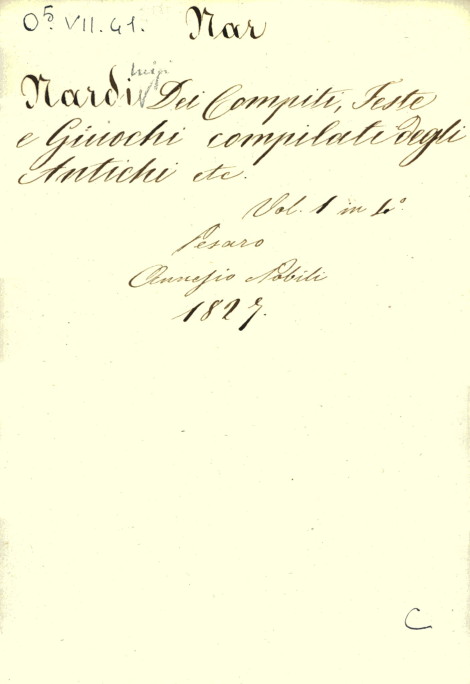 O⁵ VII. 41. Nar
Luigi
Nardi Dei Compiti, Feste
e Giuochi compilati degli
Antichi etc.
Vol. 1 in 4.º
Pesaro
Annesio Nobili
1827.
C